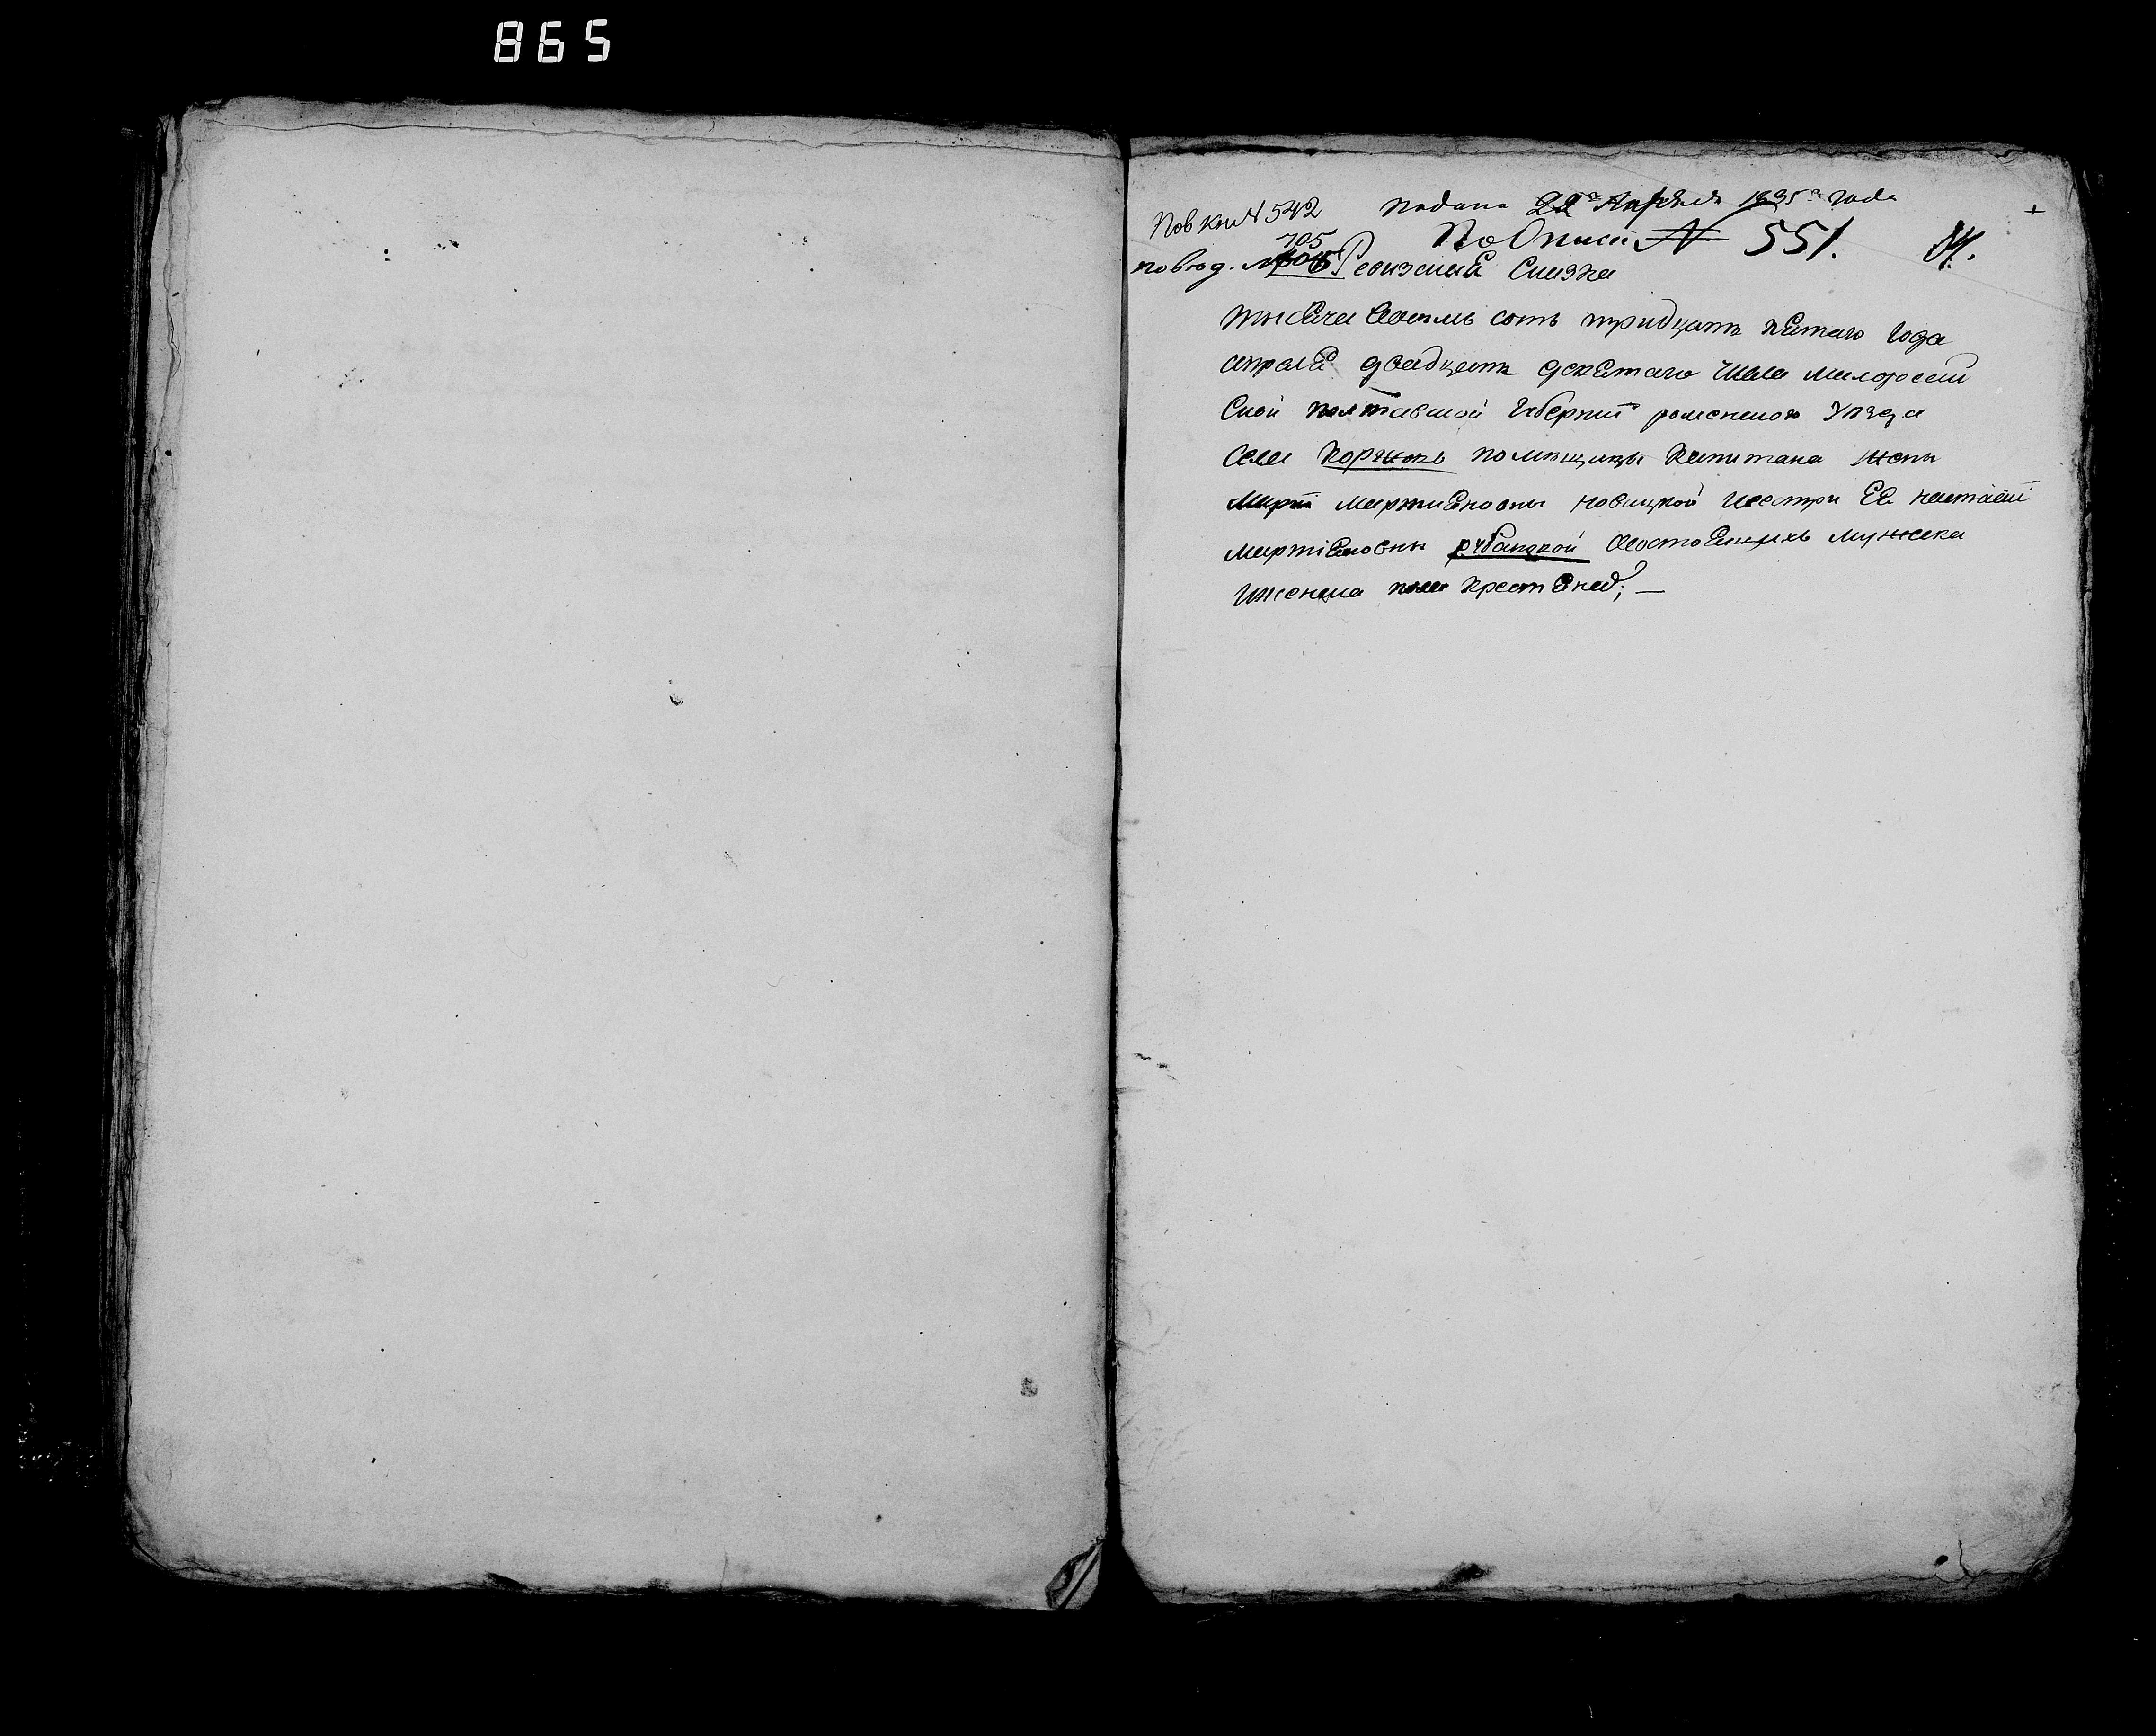 865
Пов кни № 542 Подана 22го Апреля 1835го года
705
По Описи № 551.
по вюд. № Ревизская Сказка
тысяча восемь сотъ тридцать пятаго года
апреля двадцать девятаго числа малоросій
ской полтавской губерніи роменского уѣзда
села коржовъ помѣщицы капитана жены
маріи мартиновны новицкой исестри Ея настасіи
мартіяновны рубановой осостоящихъ мужеска
иженска пола крестянѣ;—